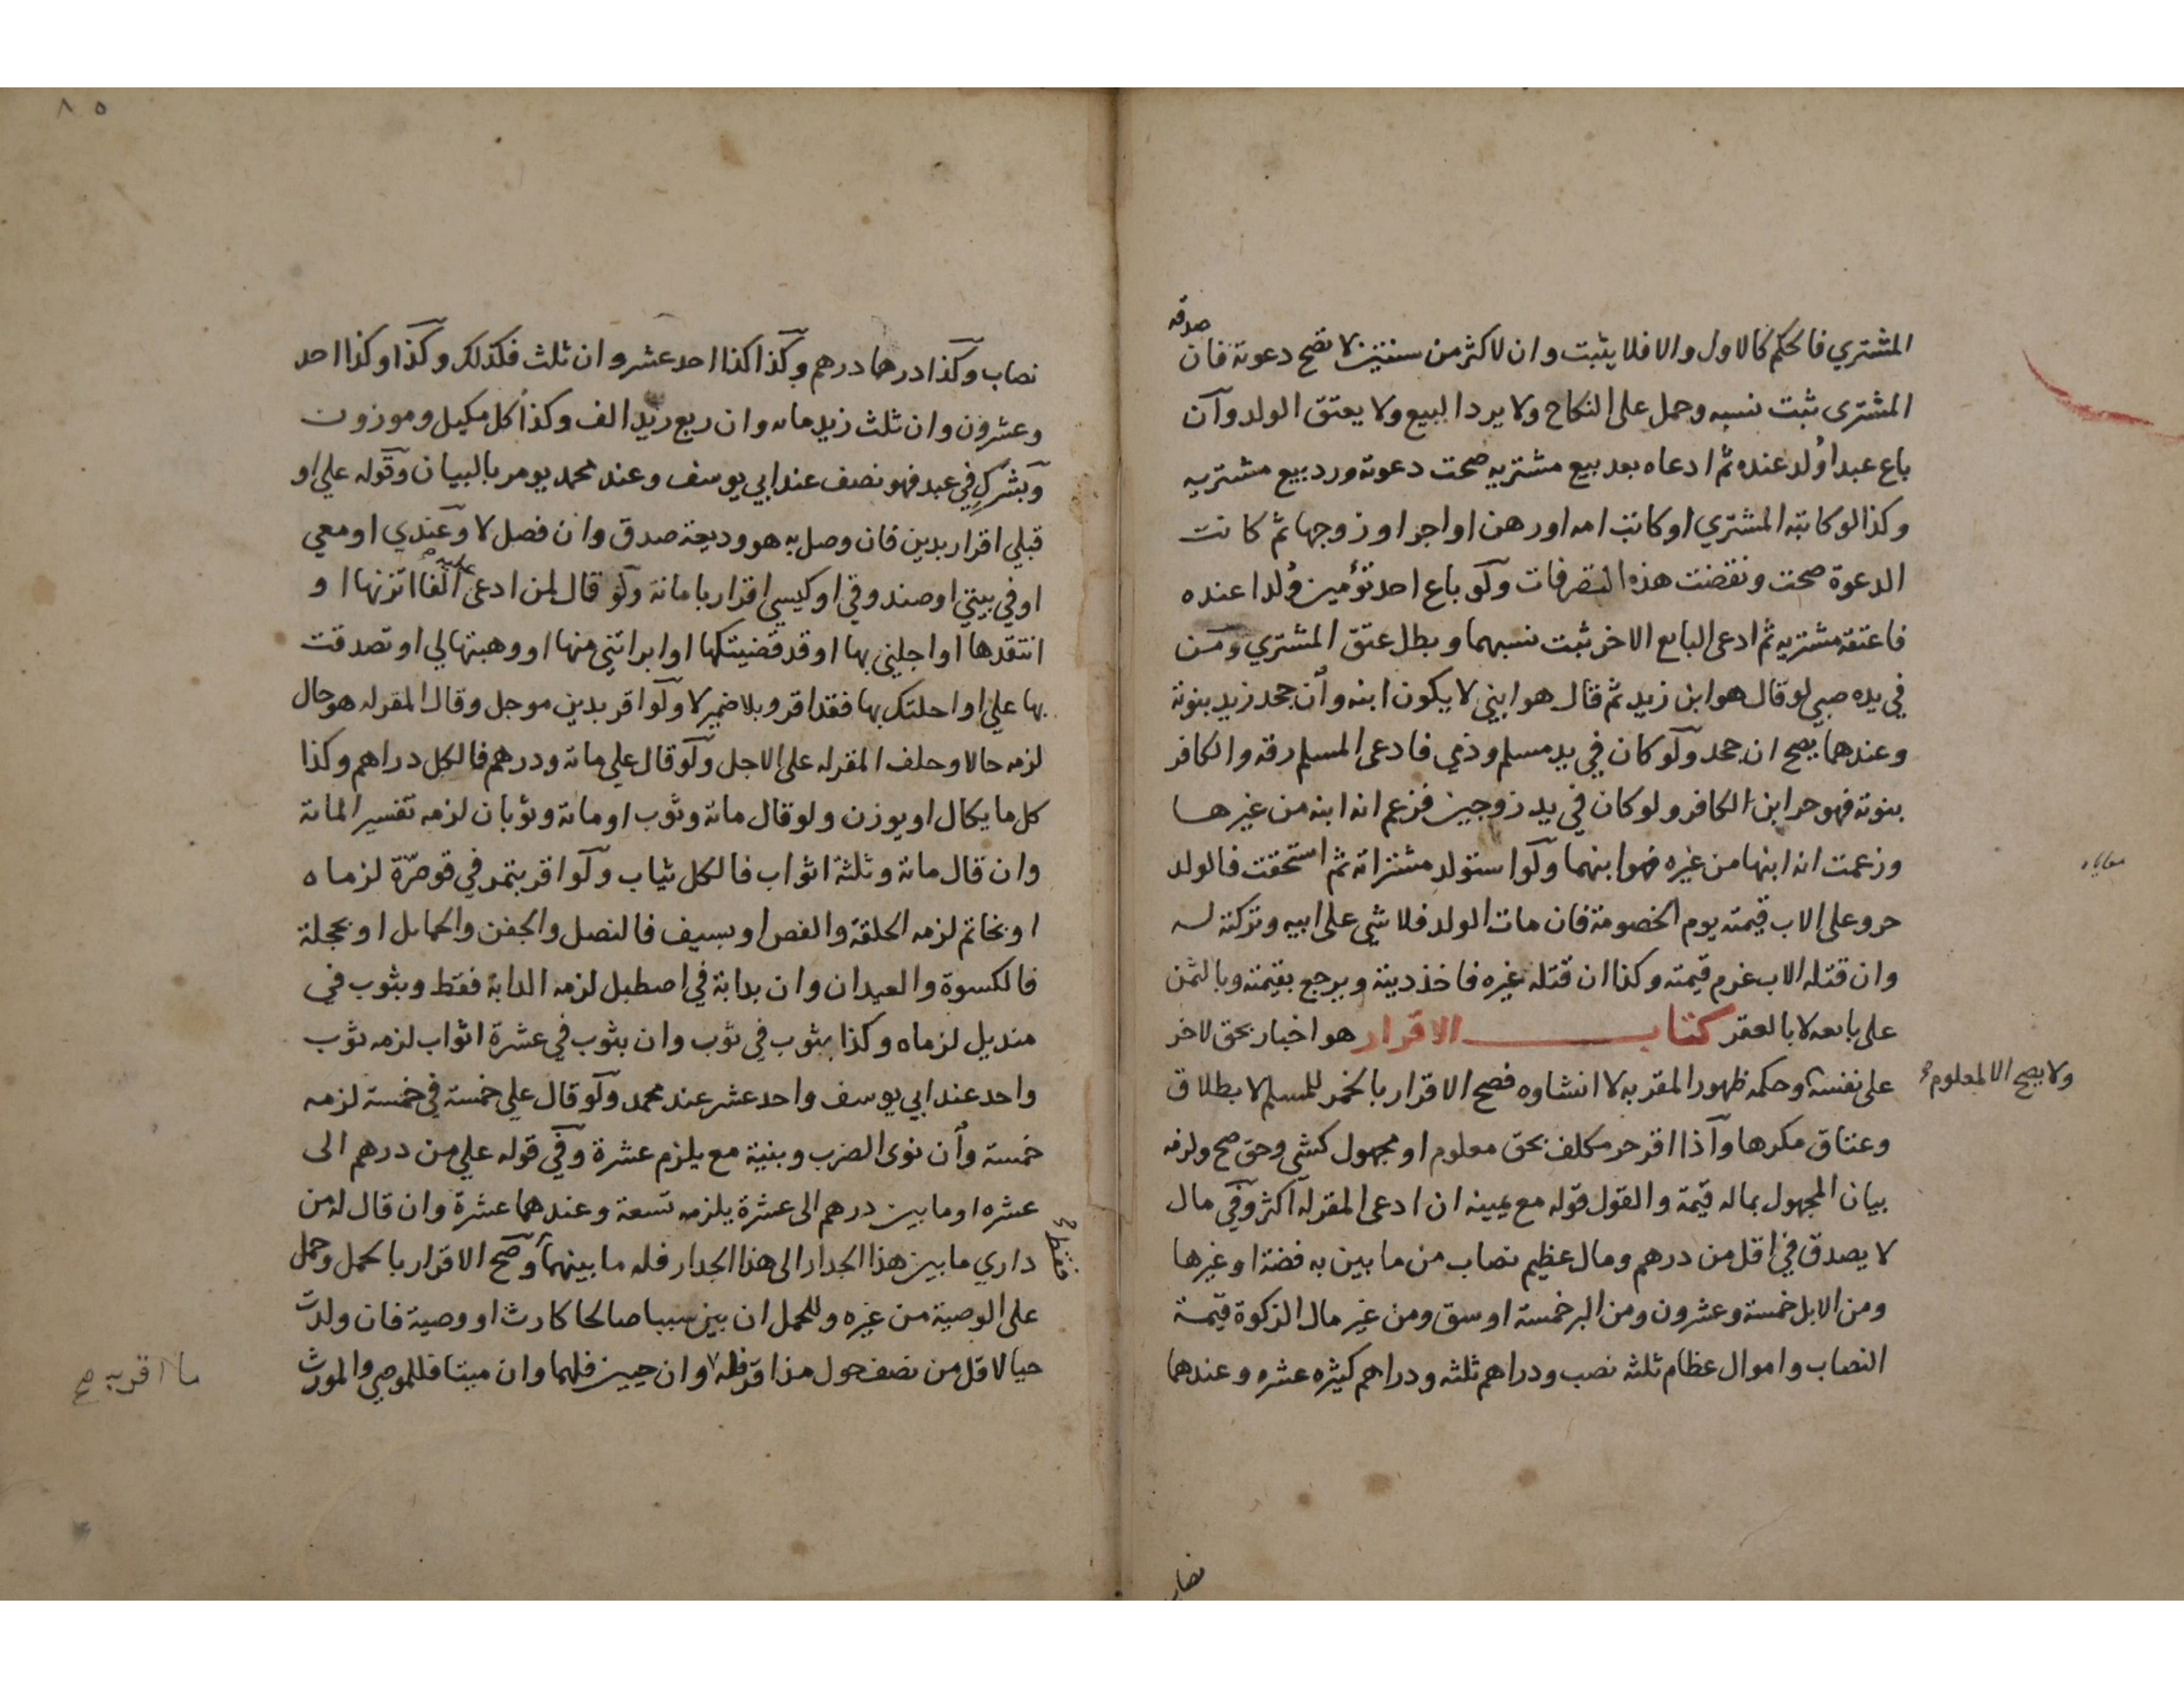 المشتري فالحكم كالاول والا فلا يثبت وان لاكثر من سنتين لا تصح دعوته فان صدقه
المشترى ثبت نسبه وحمل على النكاح ولا يرد البيع ولا يعتق الولد وان
باع عبدا ولد عنده ثم ادعاه بعد بيع مشتريه صحت دعوته ورد بيع مشتريه
وكذا لو كاتبه المشتري او كاتب امه او رهن او اجر او زوجها ثم كانت
الدعوة صحت ونقضت هذه التصرفات ولو باع احد توأمين ولدا عنده
فاعتقه مشتريه ثم ادعى البايع الاخر ثبت نسبهما وبطل عتق المشتري ومن
في يده صبي لو قال هو ابن زيد ثم قال هو ابني لا يكون ابنه وان جحد زيد بنوته
وعندهما يصح ان جحد ولو كان في يد مسلم وذمي فادعى المسلم رقه والكافر
بنوته فهو حر ابن الكافر ولو كان في يد زوجين فزعم انه ابنه من غيرها
وزعمت انه ابنها من غيره فهو ابنهما ولو استولد مشتراته ثم استحقت فالولد
حر وعلى الاب قيمته يوم الخصومة فان مات الولد فلا شي على ابيه وتركته له
وان قتله الاب غرم قيمته وكذا ان قتله غيره فاخذ ديته ويرجع بقيمته وبالثمن
على بايعه لا بالعقر كتاب الاقرار هو اخبار بحق لاخر
على نفسه وحكمه ظهور المقر به لا انشاوه فصح الاقرار بالخمر للمسلم لا بطلاق
ولا يصح الا لمعلوم
وعتاق مكرها واذا اقر حر مكلف بحق معلوم او مجهول كشي وحق صح ولزمه
بيان المجهول بماله قيمة والقول قوله مع يمينه ان ادعى المقر له اكثر وفي مال
لا يصدق في اقل من درهم ومال عظيم نصاب من ما بين به فضة او غيرها
ومن الابل خمسة وعشرون ومن البر خمسة اوسق ومن غير مال الزكوة قيمة
النصاب واموال عظام ثلثه نصب ودراهم ثلثه ودراهم كثيره عشره وعندهما
نصاب
٨٥
نصاب وكذا درهما درهم وكذا كذا احد عشر وان ثلث فكذلك وكذا وكذا احد
وعشرون وان ثلث زيد مائه وان ربع زيد الف وكذا كل مكيل وموزون
وبشرك في عبد فهو نصف عند ابي يوسف وعند محمد يومر بالبيان وقوله علي او
قبلي اقرار بدين فان وصل به هو وديعة صدق وان فصل لا وعندي او معي
او في بيتي او صندوقي او كيسي اقرار بامانة ولو قال لمن ادعى عليه الفا اتزنها او
انتقدها او اجلني بها او قد قضيتكها او ابراتني منها او وهبتها لي او تصدقت
بها علي او احلتك بها فقد اقر وبلا ضمير لا ولو اقر بدين موجل وقال المقر له هو حال
لزمه حالا وحلف المقر له على الاجل ولو قال علي مائة ودرهم فالكل دراهم وكذا
كل ما يكال او يوزن ولو قال مائة وثوب او مائة وثوبان لزمه تفسير المائة
وان قال مائة وثلثة اثواب فالكل ثياب ولو اقر بتمر في قوصرة لزماه
او بخاتم لزمه الحلقة والفص او بسيف فالنصل والجفن والحمايل او بحجلة
فالكسوة والعيدان وان بدابة في اصطبل لزمه الدابة فقط وبثوب في
منديل لزماه وكذا بثوب في ثوب وان بثوب في عشرة اثواب لزمه ثوب
واحد عند ابي يوسف واحد عشر عند محمد ولو قال علي خمسة في خمسة لزمه
خمسة وان نوى الضرب وبنية مع يلزم عشرة وفي قوله علي من درهم الى
عشره او ما بين درهم الى عشرة يلزمه تسعة وعندهما عشرة وان قال له من
داري ما بين هذا الجدار الى هذا الجدار فله ما بينهما وصح الاقرار بالحمل وحمل
فقط
على الوصية من غيره وللحمل ان بين سببا صالحا كارث او وصية فان ولدت
حيا لاقل من نصف حول مذ اقر فله وان حيين فلهما وان ميتا فللموصي والمورث
ما اقر به صح